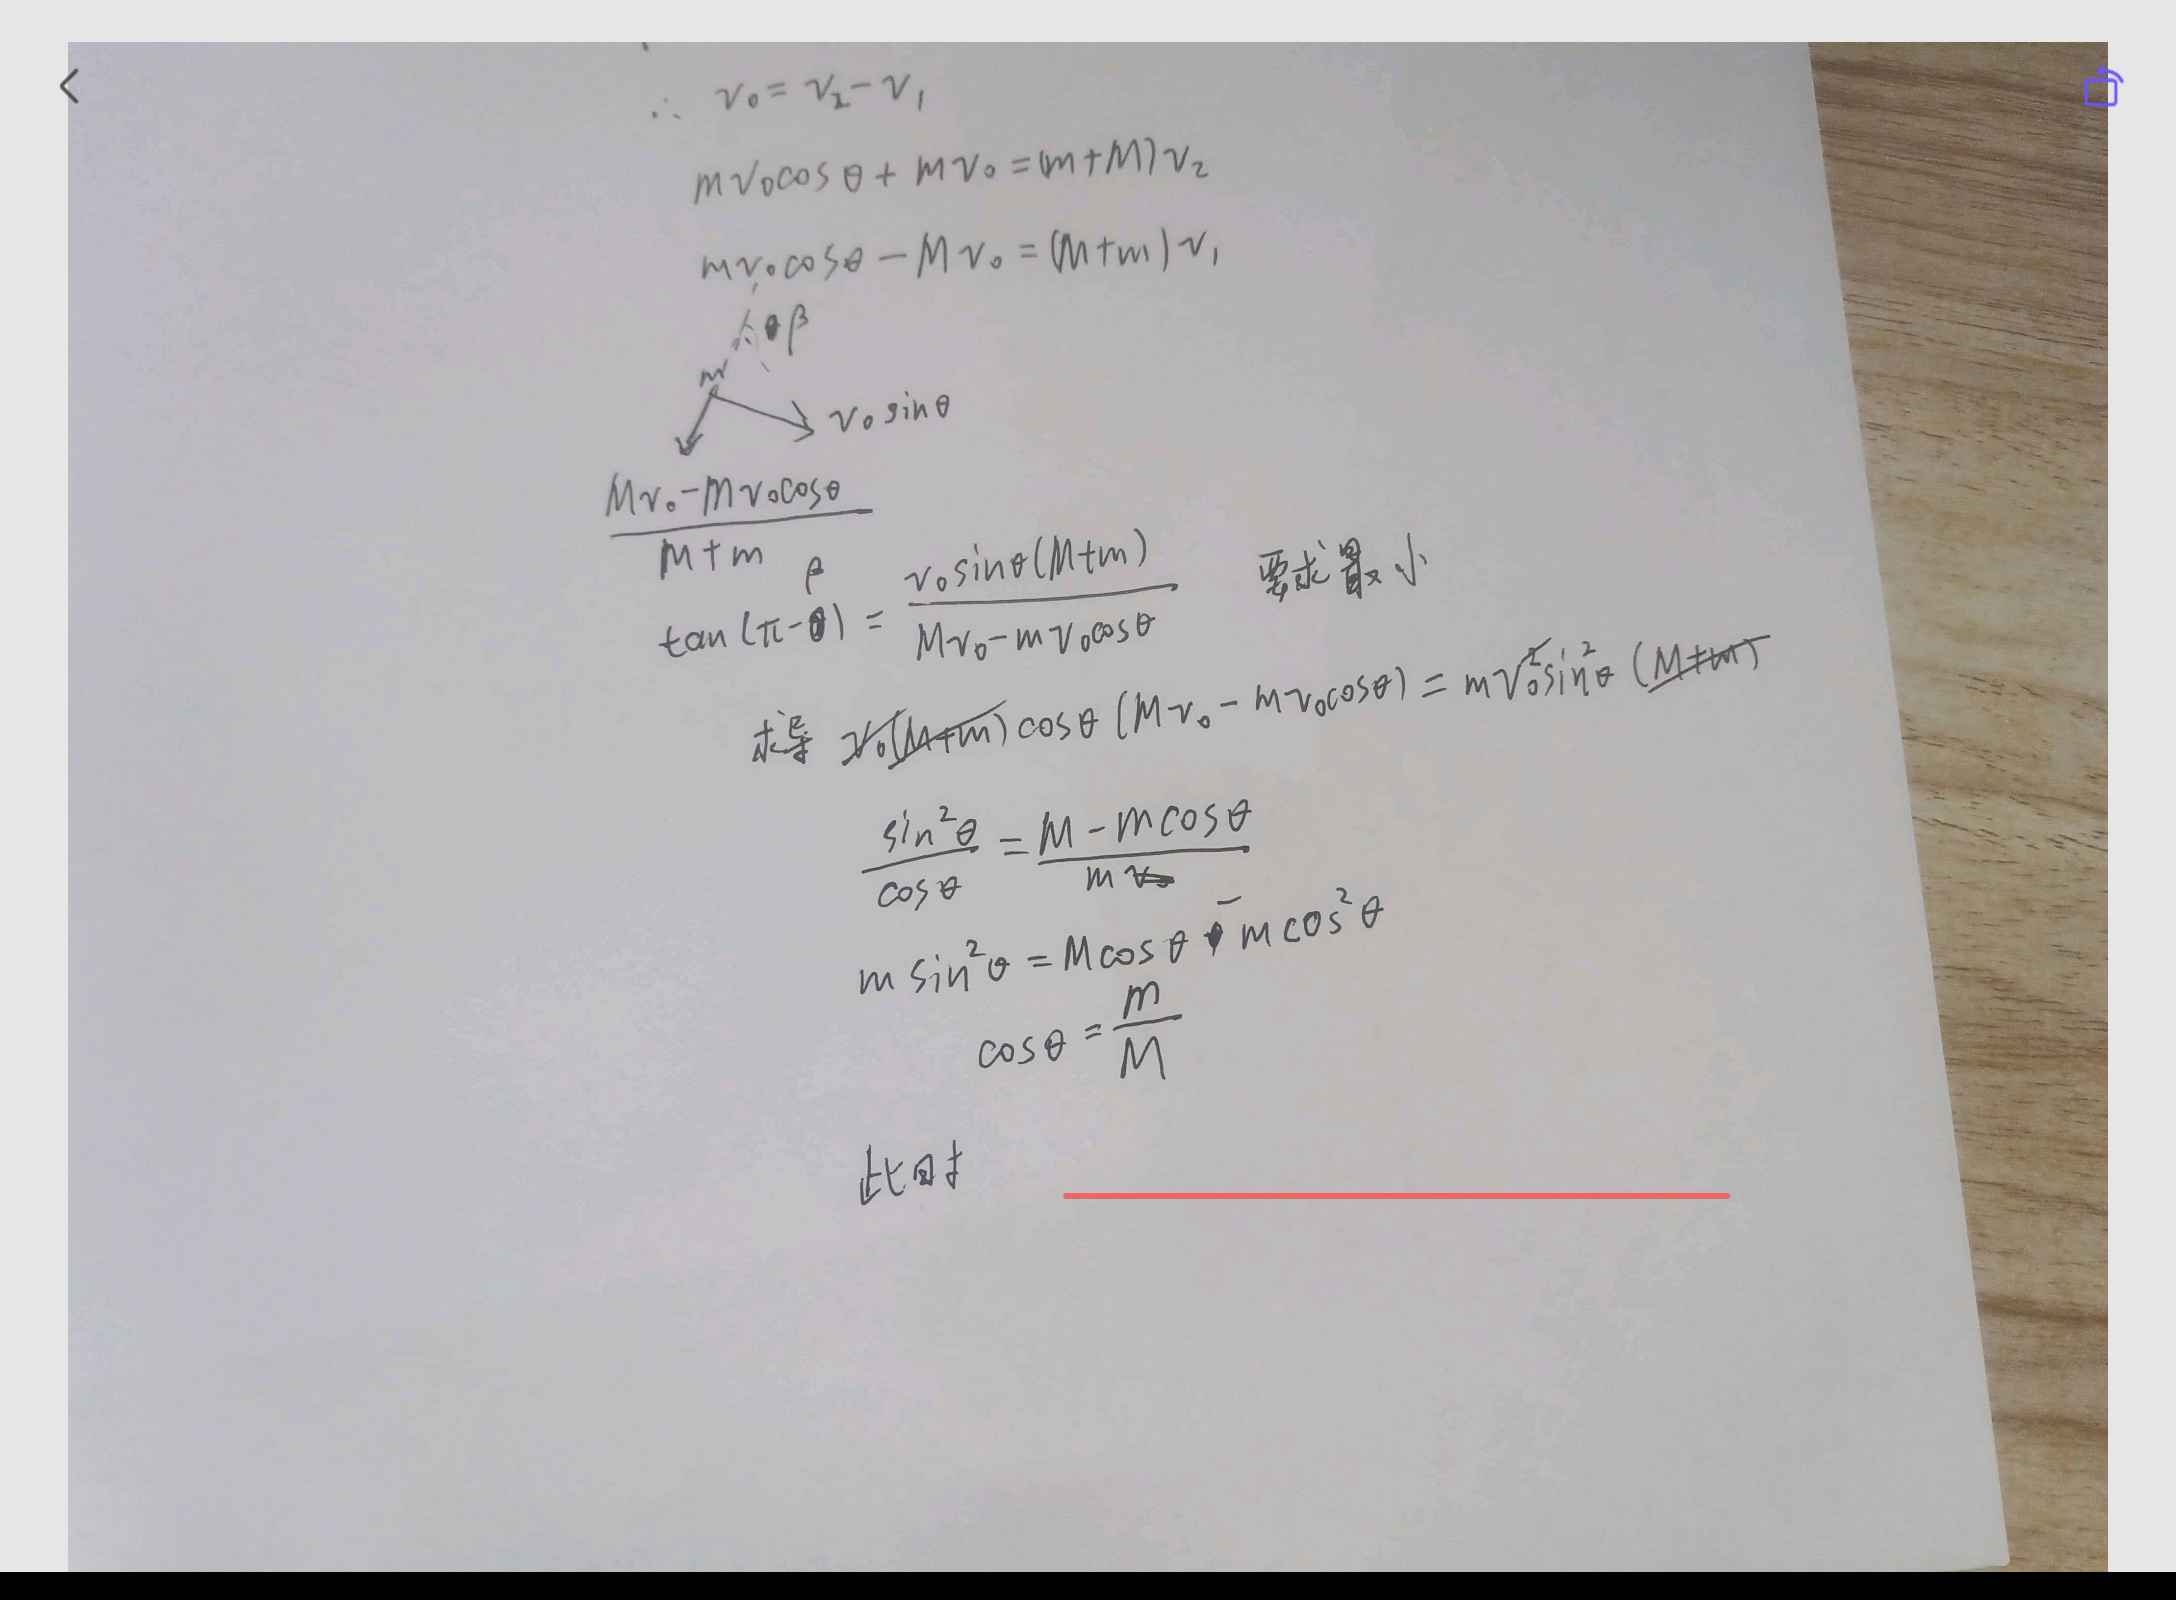 ∴ v₀ = v₂ - v₁
mv₀cosθ + mv₀ = (m+M)v₂
mv₀cosθ - Mv₀ = (M+m)v₁
β
m
v₀sinθ
Mv₀-mv₀cosθ
M+m
tan(π-β) = v₀sinθ(M+m) / Mv₀-mv₀cosθ 要求最小
求导 v₀(M+m)cosθ(Mv₀-mv₀cosθ) = mv₀²sin²θ(M+m)
sin²θ / cosθ = M-mcosθ / m
m sin²θ = Mcosθ - mcos²θ
cosθ = m / M
此时